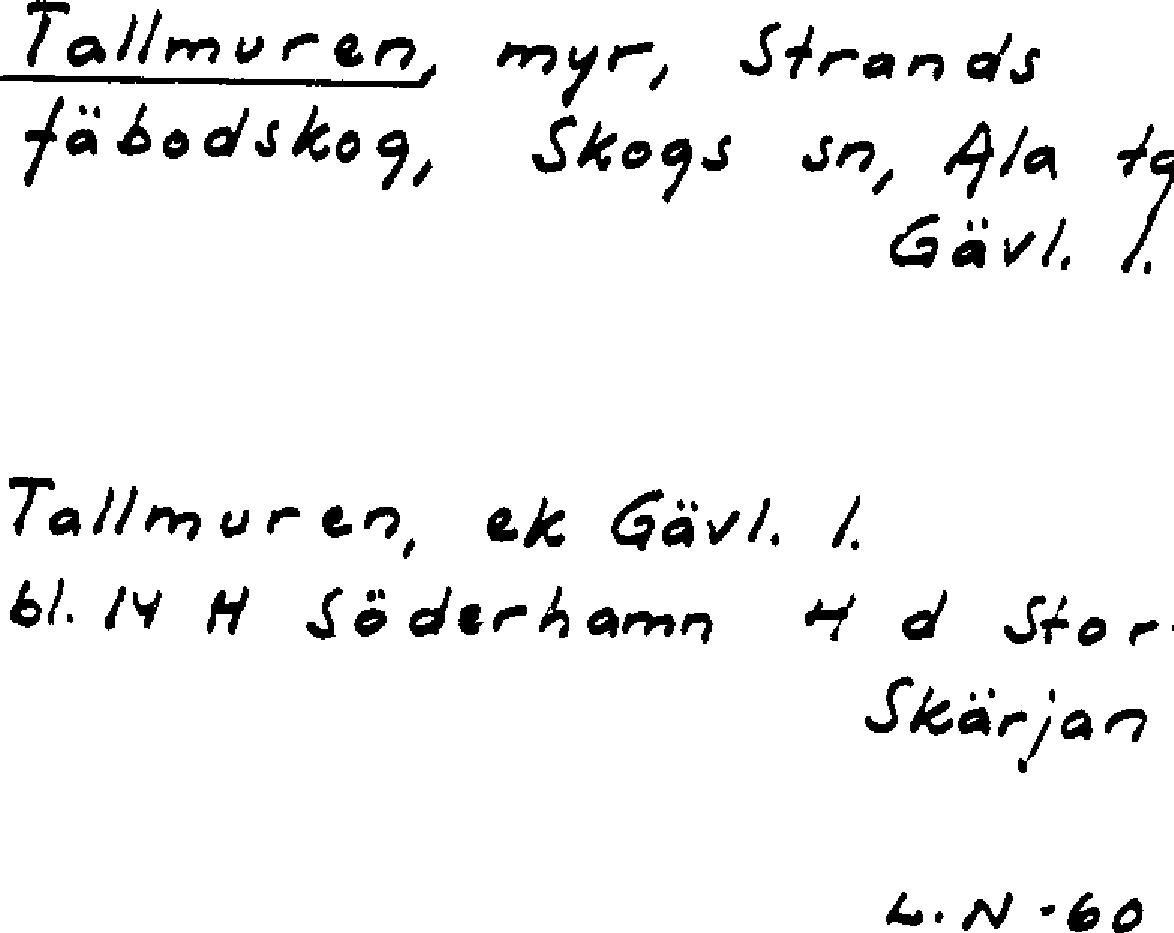 Tallmuren, myr, Strands
fäbodskog, Skogs sn, Ala tg
Gävl. l.
Tallmuren, ek Gävl. l.
bl. 14 H Söderhamn 4 d Stor-
Skärjan
L. N -60